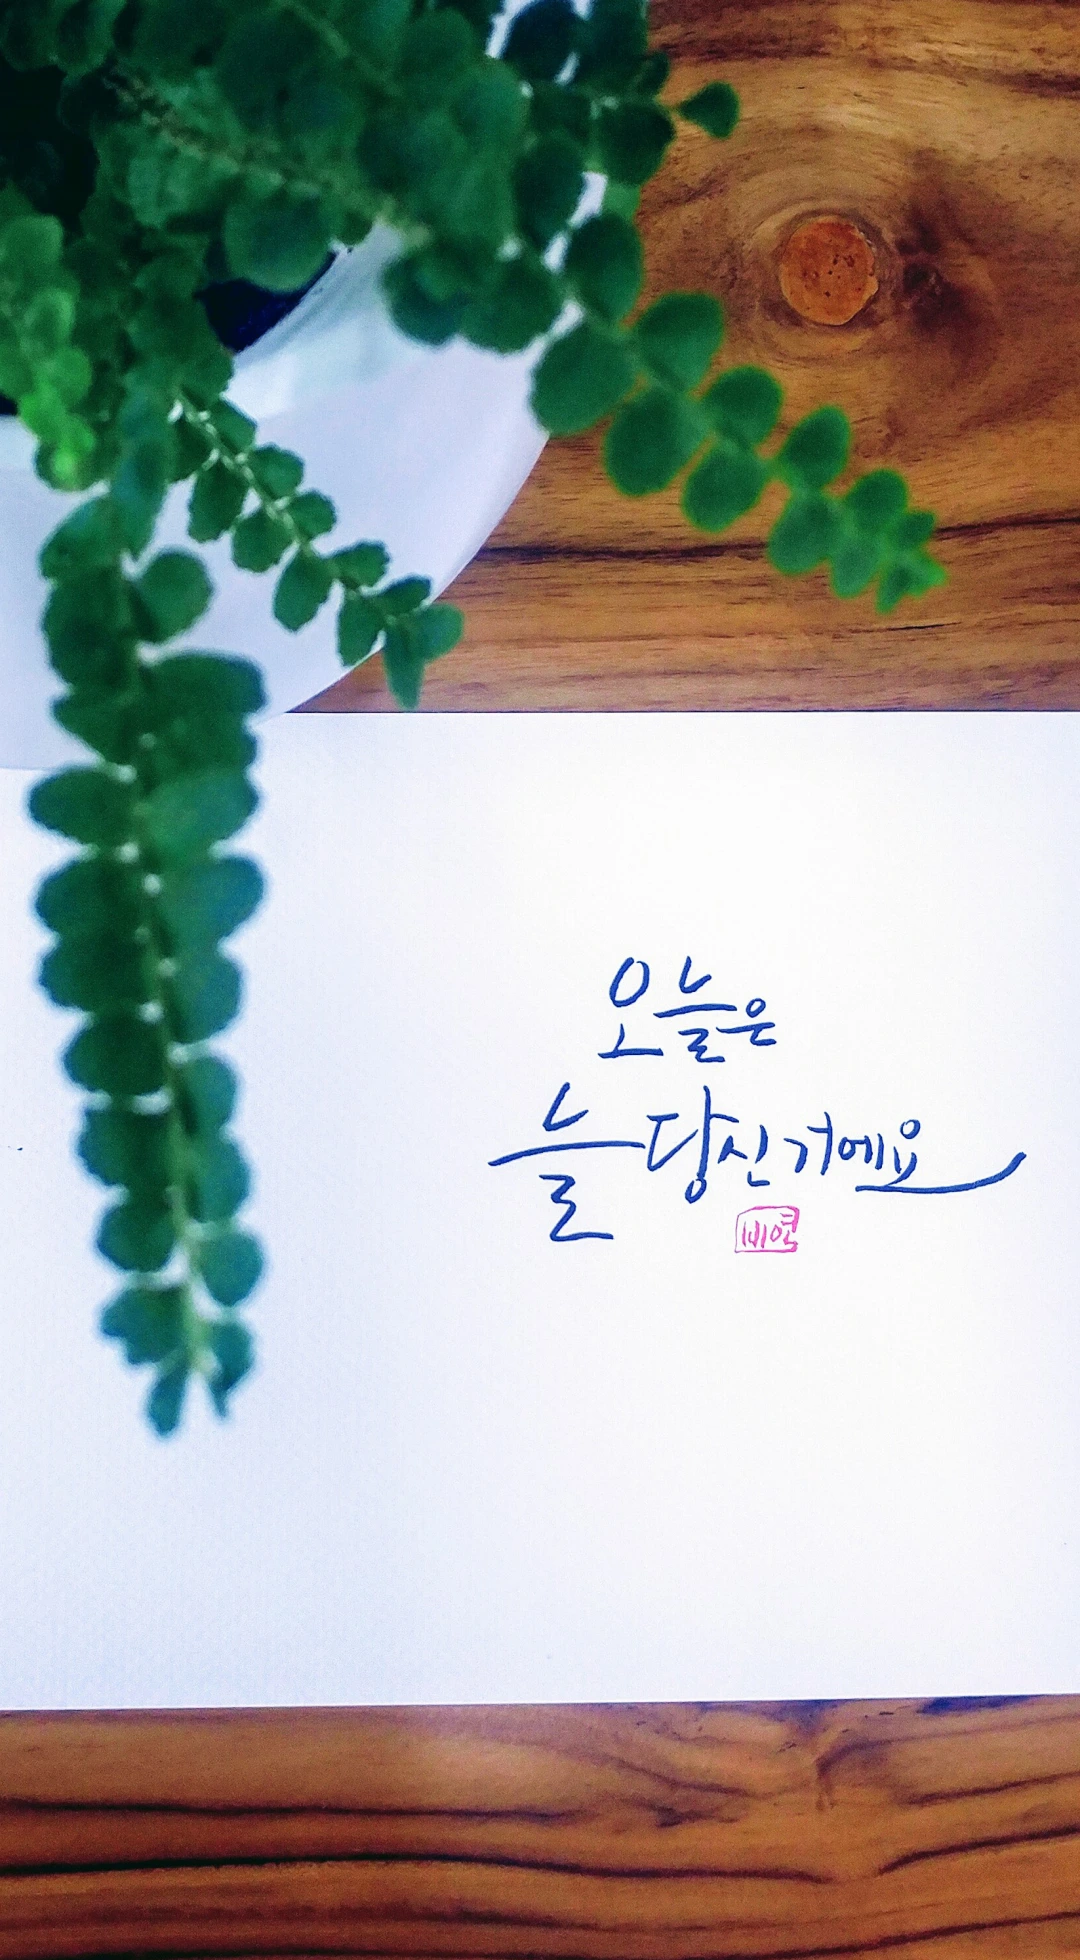 오늘은
늘 당신 거에요
비연